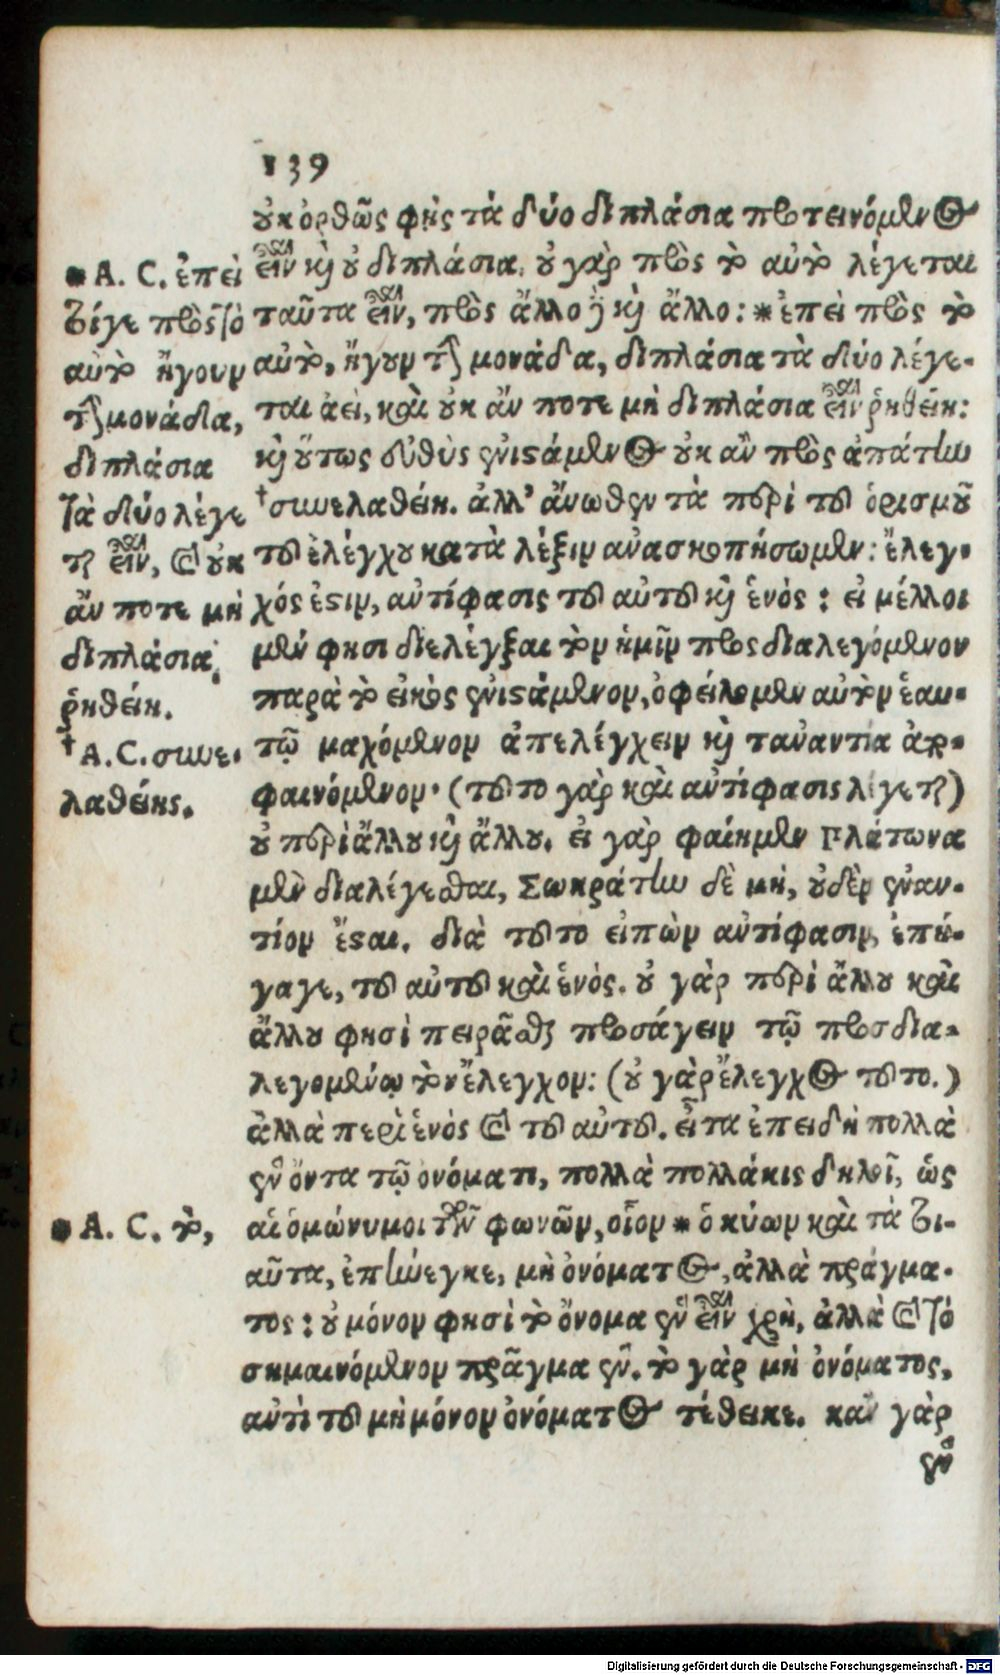 139
οὐκ ὀρθῶς φῂς τὰ δύο διπλάσια προτεινόμενος
εἶναι καὶ οὐ διπλάσια. οὐ γὰρ πρὸς τὸ αὐτὸ λέγεται
ταῦτα εἶναι, πρὸς ἄλλο δὲ καὶ ἄλλο: * ἐπεὶ πρὸς τὸ
αὐτὸ, ἤγουν τὴν μονάδα, διπλάσια τὰ δύο λέγε-
ται ἀεὶ, καὶ οὐκ ἄν ποτε μὴ διπλάσια εἶναι ῥηθείη:
καὶ οὕτως εὐθὺς ἐνιστάμενος οὐκ ἂν πρὸς ἀπάτην
†συνελαθείη. ἀλλ' ἄνωθεν τὰ περὶ τοῦ ὁρισμοῦ
τοῦ ἐλέγχου κατὰ λέξιν ἀνασκοπήσωμεν: ἔλεγ-
χός ἐστιν, ἀντίφασις τοῦ αὐτοῦ καὶ ἑνός: εἰ μέλλοι
μέν φησι διελέγξαι τὸν ἡμῖν προσδιαλεγόμενον
παρὰ τὸ εἰκὸς ἐνιστάμενον, ὀφείλομεν αὐτὸν ἑαυ-
τῷ μαχόμενον ἀπελέγχειν καὶ ταναντία ἀπο-
φαινόμενον· (τοῦτο γὰρ καὶ ἀντίφασις λέγεται)
οὐ περὶ ἄλλου καὶ ἄλλου. εἰ γὰρ φαίημεν Πλάτωνα
μὲν διαλέγεσθαι, Σωκράτην δὲ μὴ, οὐδὲν ἐναν-
τίον ἔσται. διὰ τοῦτο εἰπὼν ἀντίφασιν, ἐπή-
γαγε, τοῦ αὐτοῦ καὶ ἑνός. οὐ γὰρ περὶ ἄλλου καὶ
ἄλλου φησὶ πειρᾶσθαι προσάγειν τῷ προσδια-
λεγομένῳ τὸν ἔλεγχον: (οὐ γὰρ ἔλεγχος τοῦτο.)
ἀλλὰ περὶ ἑνὸς καὶ τοῦ αὐτοῦ. εἶτα ἐπειδὴ πολλὰ
ἓν ὄντα τῷ ὀνόματι, πολλὰ πολλάκις δηλοῖ, ὡς
αἱ ὁμώνυμοι τῶν φωνῶν, οἷον * ὁ κύων καὶ τὰ τοι-
αῦτα, ἐπήνεγκε, μὴ ὀνόματος, ἀλλὰ πράγμα-
τος: οὐ μόνον φησὶ τὸ ὄνομα ἓν εἶναι χρὴ, ἀλλὰ καὶ τὸ
σημαινόμενον πρᾶγμα ἕν. τὸ γὰρ μὴ ὀνόματος,
ἀντὶ τοῦ μὴ μόνον ὀνόματος τέθεικε. κἂν γὰρ
ἓν
* A. C. ἐπεὶ
τοίγε πρὸς τὸ
αὐτὸ ἤγουν
τὴν μονάδα,
διπλάσια
τὰ δύο λέγε
ται εἶναι, καὶ οὐκ
ἄν ποτε μὴ
διπλάσια
ῥηθείη.
† A. C. συνε-
λαθείης.
* A. C. τὸ,
Digitalisierung gefördert durch die Deutsche Forschungsgemeinschaft - DFG